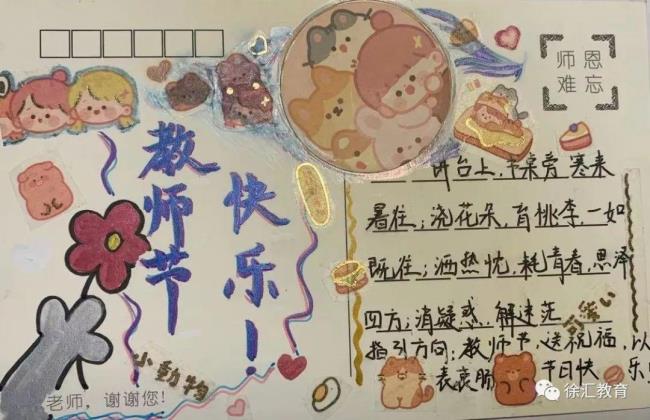 师恩
难忘
教师节
快乐！
讲台上，书桌旁，寒来
暑往；浇花朵，育桃李，一如
既往；洒热忱，耗青春，思泽
四方；消疑惑，解迷茫
指引方向；教师节，送祝福，以
表衷肠 节日快乐！
可爱
小動物
老师，谢谢您！
徐汇教育